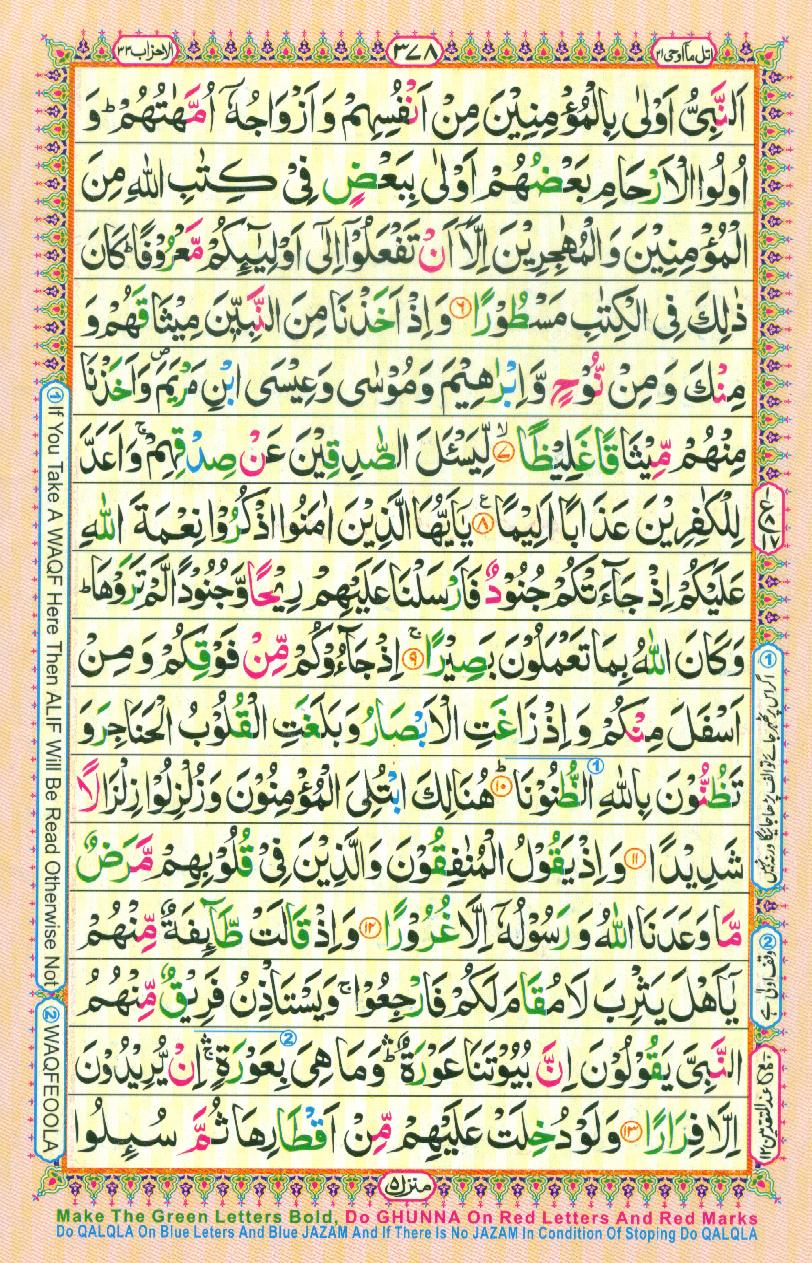 اتل ما اوحی ۲۱
۳۷۸
الاحزاب ۳۳
اَلنَّبِىُّ اَوْلٰى بِالْمُؤْمِنِيْنَ مِنْ اَنْفُسِهِمْ وَاَزْوَاجُهٗۤ اُمَّهٰتُهُمْ ؕ وَ
اُولُوا الْاَرْحَامِ بَعْضُهُمْ اَوْلٰى بِبَعْضٍ فِىْ كِتٰبِ اللّٰهِ مِنَ
الْمُؤْمِنِيْنَ وَالْمُهٰجِرِيْنَ اِلَّاۤ اَنْ تَفْعَلُوْۤا اِلٰٓى اَوْلِيٰٓٮِٕكُمْ مَّعْرُوْفًا ؕ كَانَ
ذٰلِكَ فِى الْكِتٰبِ مَسْطُوْرًا ۶ وَاِذْ اَخَذْنَا مِنَ النَّبِيّٖنَ مِيْثَاقَهُمْ وَ
مِنْكَ وَمِنْ نُّوْحٍ وَّاِبْرٰهِيْمَ وَمُوْسٰى وَعِيْسَى ابْنِ مَرْيَمَ ۪ وَاَخَذْنَا
مِنْهُمْ مِّيْثَاقًا غَلِيْظًا ۙ ۷ لِّيَسْـَٔلَ الصّٰدِقِيْنَ عَنْ صِدْقِهِمْ ۚ وَاَعَدَّ
لِلْكٰفِرِيْنَ عَذَابًا اَلِيْمًا ۸ يٰۤاَيُّهَا الَّذِيْنَ اٰمَنُوا اذْكُرُوْا نِعْمَةَ اللّٰهِ
عَلَيْكُمْ اِذْ جَآءَتْكُمْ جُنُوْدٌ فَاَرْسَلْنَا عَلَيْهِمْ رِيْحًا وَّجُنُوْدًا لَّمْ تَرَوْهَا ؕ
وَكَانَ اللّٰهُ بِمَا تَعْمَلُوْنَ بَصِيْرًا ۚ ۹ اِذْ جَآءُوْكُمْ مِّنْ فَوْقِكُمْ وَمِنْ
اَسْفَلَ مِنْكُمْ وَاِذْ زَاغَتِ الْاَبْصَارُ وَبَلَغَتِ الْقُلُوْبُ الْحَنَاجِرَ وَ
تَظُنُّوْنَ بِاللّٰهِ الظُّنُوْنَا ۱۰ هُنَالِكَ ابْتُلِىَ الْمُؤْمِنُوْنَ وَزُلْزِلُوْا زِلْزَالًا
شَدِيْدًا ۱۱ وَاِذْ يَقُوْلُ الْمُنٰفِقُوْنَ وَالَّذِيْنَ فِىْ قُلُوْبِهِمْ مَّرَضٌ
مَّا وَعَدَنَا اللّٰهُ وَرَسُوْلُهٗۤ اِلَّا غُرُوْرًا ۱۲ وَاِذْ قَالَتْ طَّآٮِٕفَةٌ مِّنْهُمْ
يٰۤاَهْلَ يَثْرِبَ لَا مُقَامَ لَكُمْ فَارْجِعُوْا ۚ وَيَسْتَاْذِنُ فَرِيْقٌ مِّنْهُمُ
النَّبِىَّ يَقُوْلُوْنَ اِنَّ بُيُوْتَنَا عَوْرَةٌ ؕ وَمَا هِىَ بِعَوْرَةٍ ۚ اِنْ يُّرِيْدُوْنَ
اِلَّا فِرَارًا ۱۳ وَلَوْ دُخِلَتْ عَلَيْهِمْ مِّنْ اَقْطَارِهَا ثُمَّ سُٮِٕلُوا
منزل ۵
① If You Take A WAQF Here Then ALIF Will Be Read Otherwise Not
② WAQFEOOLA
② وقف اولی ہے
Make The Green Letters Bold, Do GHUNNA On Red Letters And Red Marks
Do QALQLA On Blue Leters And Blue JAZAM And If There Is No JAZAM In Condition Of Stoping Do QALQLA